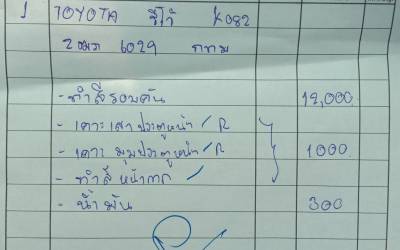 1 TOYOTA รีโว่ K082
2ฒผ 6029 กทม
- ทำสีรอบคัน 12,000
- เคาะเสาประตูหน้า / R
- เคาะ มุมประตูหน้า / R 1000
- ทำสี หน้ากาก /
- น้ำมัน 300